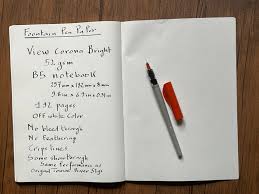 Fountain Pen Paper
View Corona Bright
52 gsm
B5 notebook
257 mm x 182 mm x 8 mm
192 pages
OFF white Color
No bleed through
No Feathering
Crips lines
Some show through
Same Performance as
Original Tomoe River 52gs